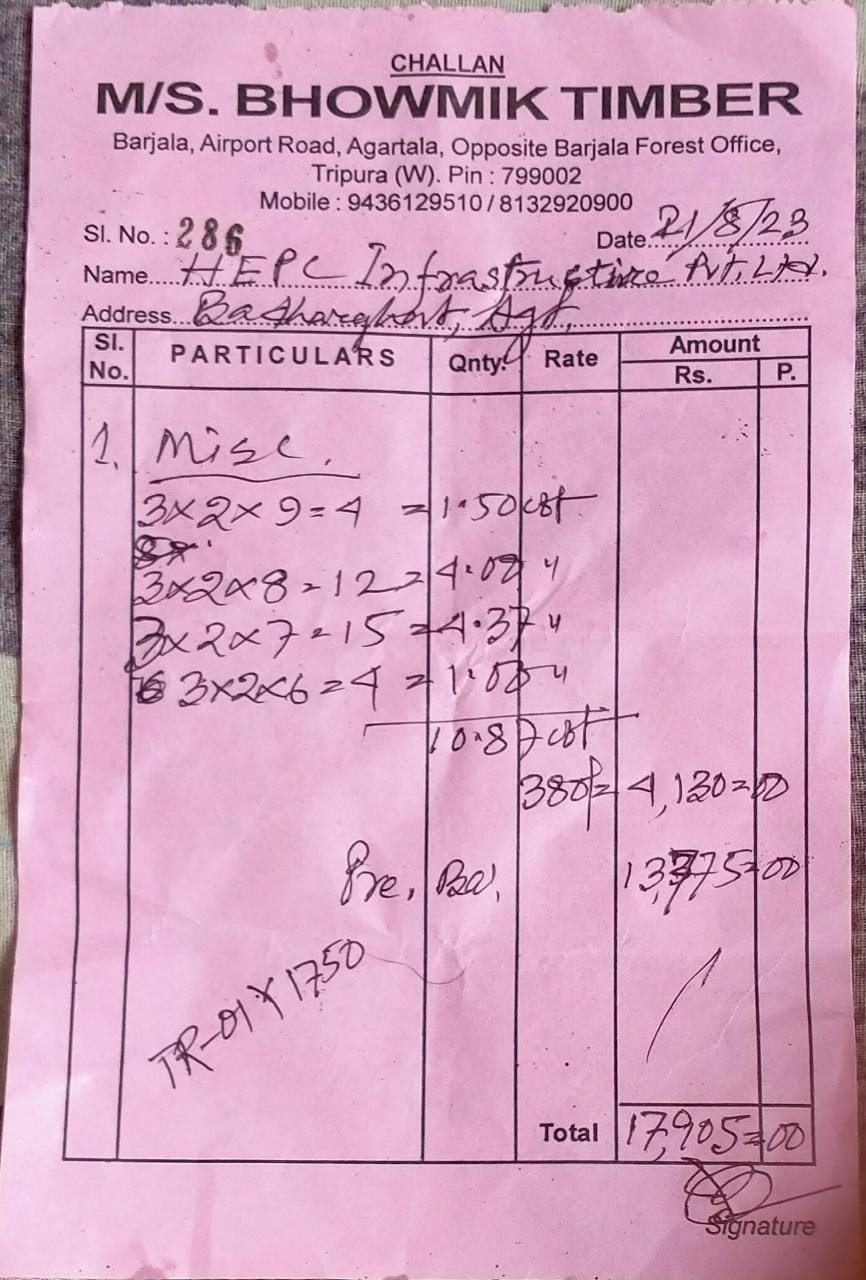 CHALLAN
M/S. BHOWMIK TIMBER
Barjala, Airport Road, Agartala, Opposite Barjala Forest Office,
Tripura (W). Pin : 799002
Mobile : 9436129510 / 8132920900
Sl. No. : 286 Date. 21/8/23
Name HEPC Infrastructure Pvt. Ltd.
Address Badharghat, Agt.
Sl. No. PARTICULARS Qnty. Rate Amount
Rs. P.
1. Misc.
3×2×9=4 =1.50 cbt
3×2×8=12=4.00 "
3×2×7=15=4.37 "
3×2×6=4 =1.00 "
10.87 cbt
380/= 4,130=00
Pre. Bal, 13,775=00
TR-01 × 1750
Total 17,905=00
Signature